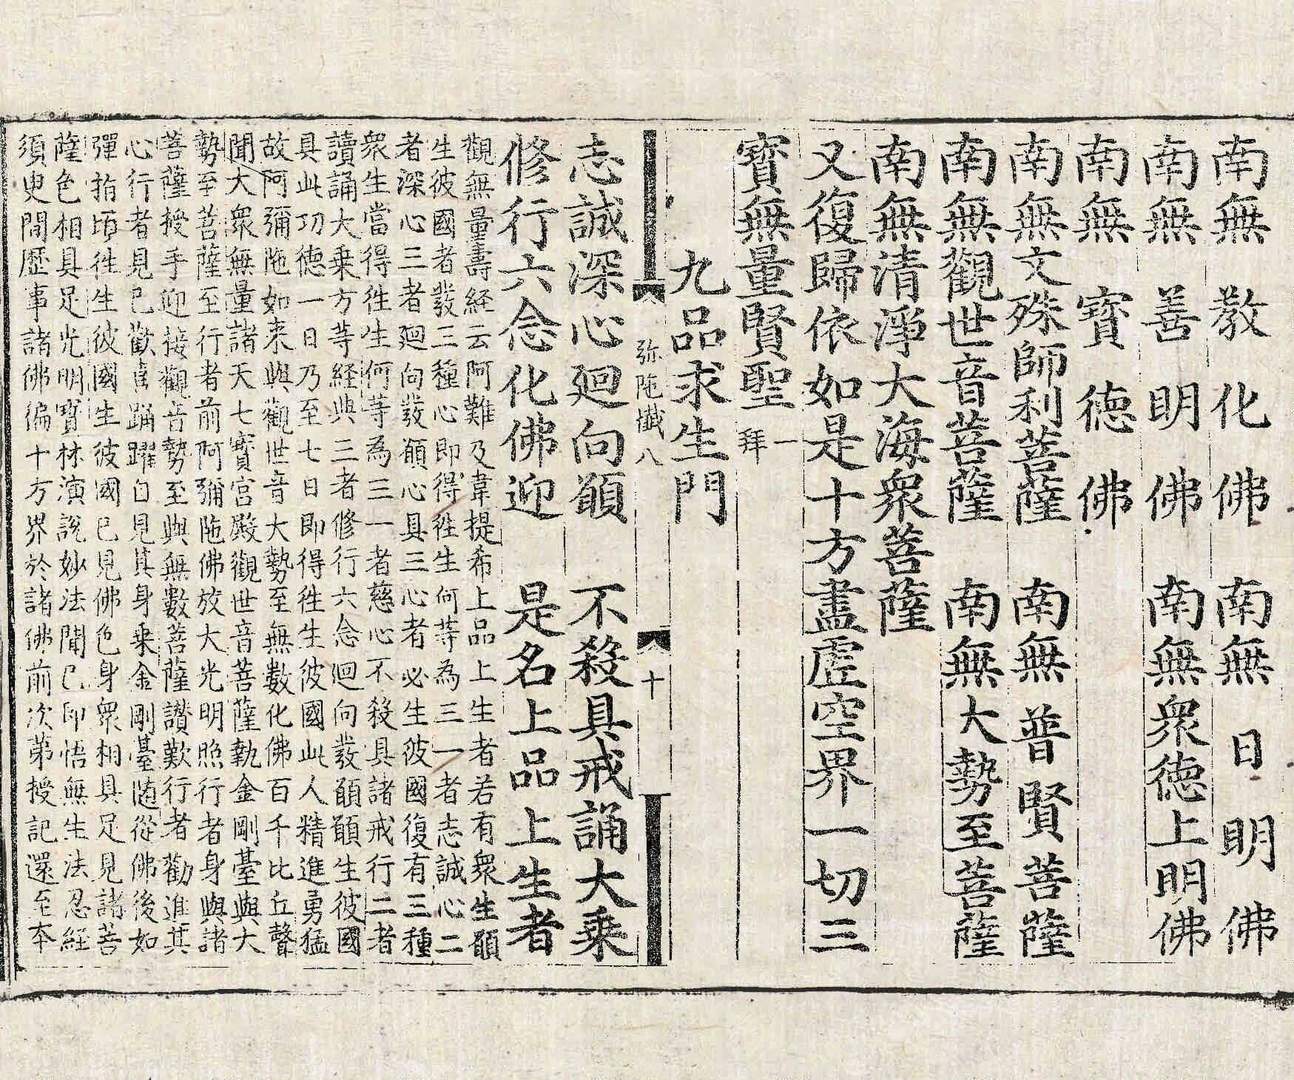 南無教化佛　南無日明佛
南無善明佛　南無衆德上明佛
南無寶德佛
南無文殊師利菩薩　南無普賢菩薩
南無觀世音菩薩　南無大勢至菩薩
南無清淨大海衆菩薩
又復歸依如是十方盡虛空界一切三
寶無量賢聖一拜
九品求生門
弥陁懺八　十
志誠深心廻向願　不殺具戒誦大乗
修行六念化佛迎　是名上品上生者
觀無量壽経云阿難及韋提希上品上生者若有衆生願
生彼國者發三種心即得徃生何等為三一者志誠心二
者深心三者廻向發願心具三心者必生彼國復有三種
衆生當得徃生何等為三一者慈心不殺具諸戒行二者
讀誦大乗方等経典三者修行六念迴向發願願生彼國
具此功德一日乃至七日即得徃生彼國此人精進勇猛
故阿彌陁如来與觀世音大勢至無數化佛百千比丘聲
聞大衆無量諸天七寳宮殿觀世音菩薩執金剛臺與大
勢至菩薩至行者前阿彌陁佛放大光明照行者身與諸
菩薩授手迎接觀音勢至與無數菩薩讃歎行者勸進其
心行者見已歡喜踊躍自見其身乗金剛臺随從佛後如
彈指頃徃生彼國生彼國已見佛色身衆相具足見諸菩
薩色相具足光明寶林演說妙法聞已即悟無生法忍経
須臾間歴事諸佛徧十方界於諸佛前次苐授記還至夲